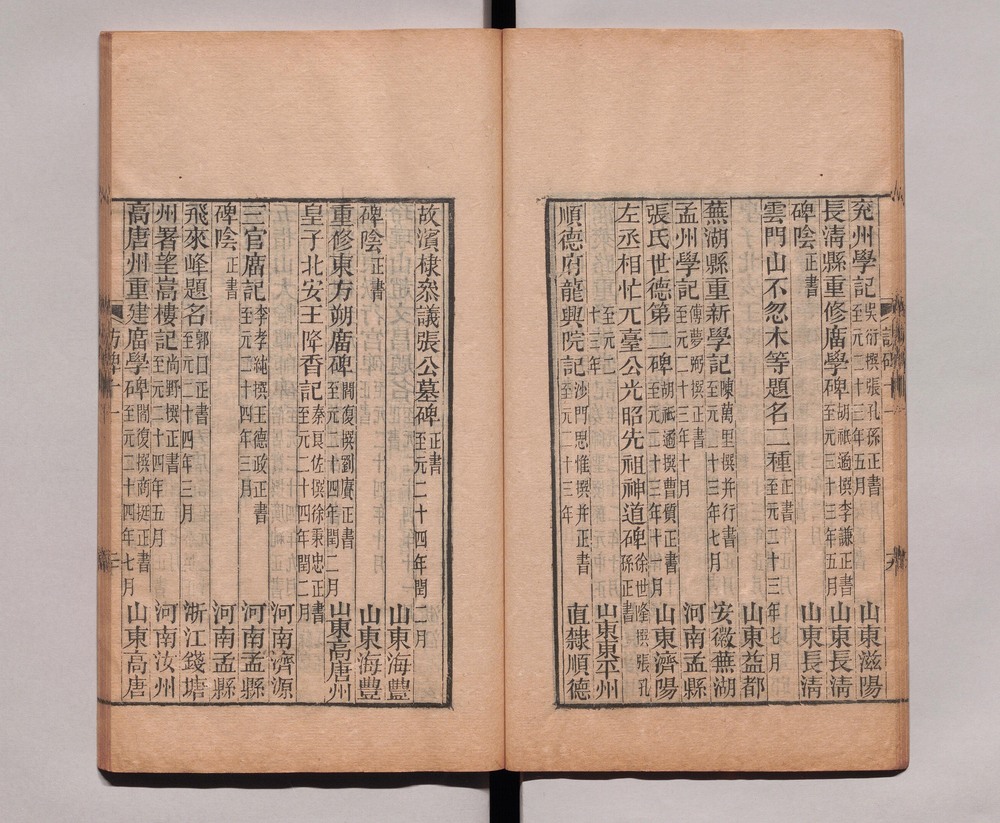 兖州學記 吳衍撰張孔孫正書至元二十三年五月 山東滋陽
長清縣重修廟學碑 胡祇遹撰李謙正書至元二十三年五月 山東長清
碑陰 正書 山東長清
雲門山不忽木等題名二種 正書至元二十三年七月 山東益都
蕪湖縣重新學記 陳萬里撰并行書至元二十三年七月 安徽蕪湖
孟州學記 傅夢弼撰正書至元二十三年十月 河南孟縣
張氏世德第二碑 胡祇遹撰曹碩正書至元二十三年十一月 山東濟陽
左丞相忙兀臺公光昭先祖神道碑 徐世隆撰張孔孫正書至元二十三年 山東東平州
順德府龍興院記 沙門思惟撰并正書至元二十三年 直隸順德
故濱棣叅議張公墓碑 正書至元二十四年閏二月 山東海豐
碑陰 正書 山東海豐
重修東方朔廟碑 閻復撰劉賡正書至元二十四年閏二月 山東高唐州
皇子北安王降香記 秦艮佐撰徐秉忠正書至元二十四年閏二月 河南濟源
三官廟記 李孝純撰王德政正書至元二十四年三月 河南孟縣
碑陰 正書 河南孟縣
飛來峰題名 郭口正書至元二十四年三月 浙江錢塘
州署望嵩樓記 尚野撰正書至元二十四年五月 河南汝州
高唐州重建廟學碑 閻復撰商挺正書至元二十四年七月 山東高唐